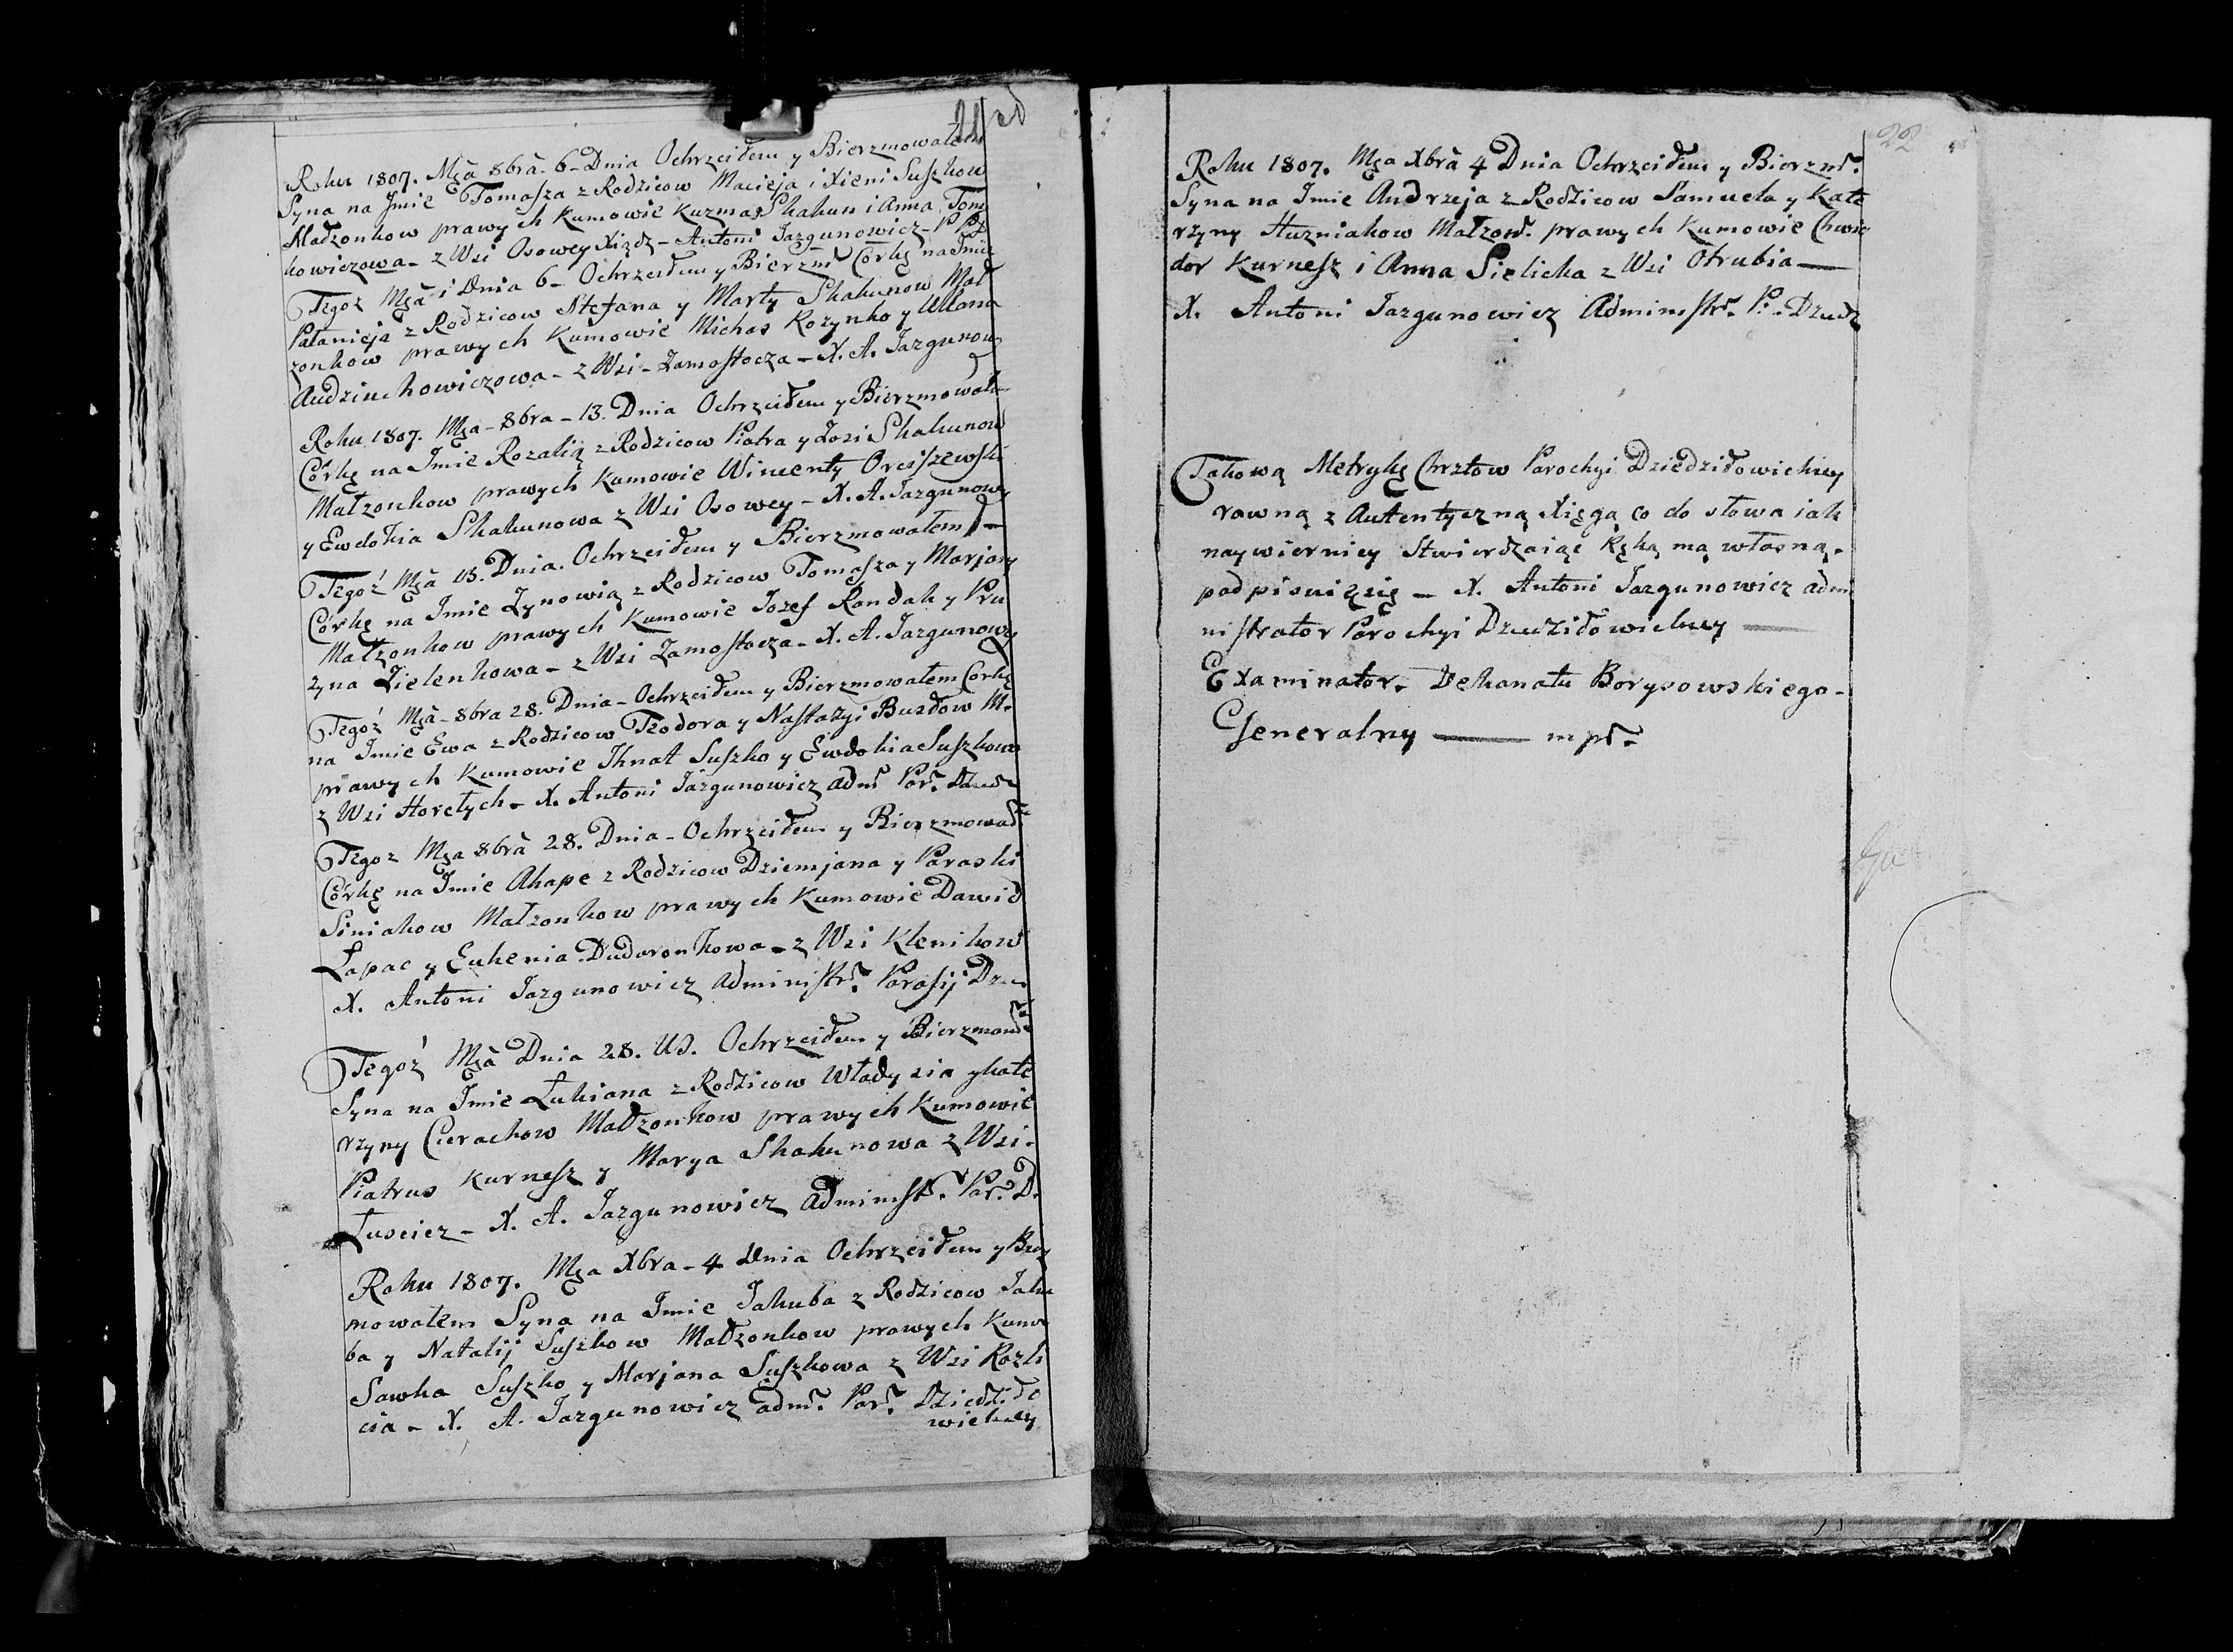 Roku 1807. Mca 8bra 6 Dnia Ochrzciłem y Bierzmowałem
Syna na Jmie Tomasza z Rodzicow Macieja i Xieni Suszkow
Małzonkow prawych Kumowie Kuzma Skakun i Anna Tom
kowiczowa - z Wsi Osowey Xiądz - Antoni Jazgunowicz -
Tegoż Mca i Dnia 6 - Ochrzciłem y Bierzm Corkę na Jmie
Pałanieja z Rodzicow Stefana y Marty Skakunow Mał
zonkow prawych Kumowie Michas Kozynko y Ullana
Audziuchowiczowa - z Wsi - Zamostocza - X. A. Jazgunow
Roku 1807. Mca - 8bra - 13. Dnia Ochrzciłem y Bierzmowałe
Córkę na Jmie Rozalią z Rodzicow Piotra y Zosi Skakunow
Małzonkow prawych Kumowie Wincenty Orciszewski
y Ewdokia Skakunowa z Wsi Osowey - X. A. Jazgunow
Tegoż Mca 13. Dnia. Ochrzciłem y Bierzmowałem
Córkę na Jmie Zynowią z Rodzicow Tomasza y Marjany
Małzonkow prawych Kumowie Jozef Randak y Pru
zyna Zielenkowa - z Wsi Zamostocza - X. A. Jazgunow
Tegoż Mca - 8bra 28. Dnia - Ochrzciłem y Bierzmowałem Corkę
na Jmie Ewa z Rodzicow Teodora y Nastazyi Busłow M.
prawych Kumowie Ihnat Suszko y Ewdokia Suszkowa
z Wsi Horełych - X. Antoni Jazgunowicz adm Par.
Tegoz Mca 8bra 28. Dnia - Ochrzciłem y Bierzmował
Córkę na Jmie Ahape z Rodzicow Dziemjana y Paraski
Siniakow Małzonkow prawych Kumowie Dawid
Łapac y Euhenia Dudaronkowa - z Wsi Klenikow
X. Antoni Jazgunowicz Administr. Parafij
Tegoż Mca Dnia 28. Ochrzciłem y Bierzmow
Syna na Jmie Łukiana z Rodzicow Władysia y Kate
rzyny Cierachow Małzonkow prawych Kumowie
Piatrus Kurnesz y Marya Skakunowa z Wsi -
Łuscicz - X. A. Jazgunowicz Administr. Par. D.
Roku 1807. Mca Xbra - 4 Dnia Ochrzciłem y
mowałem Syna na Jmie Jakuba z Rodzicow Jaku
ba y Natalij Suszkow Małzonkow prawych Kumo
Sawka Suszko y Marjana Suszkowa z Wsi Razli
cia - X. A. Jazgunowicz adm. Par. Dziedziło
wickiey
22
Roku 1807. Mca Xbra 4 Dnia Ochrzciłem y Bierzm.
Syna na Jmie Andrzeja z Rodzicow Samuela y Kate
rzyny Huzniakow Małzon. prawych Kumowie Chwie
dor Kurnesz i Anna Sielicka z Wsi Otrubia
X. Antoni Jazgunowicz Administr. P. Dzied
Takową Metrykę Chrztow Parochyi Dziedziłowickiey
rawną z Autentyczną Xięgą co do słowa iak
naywierniey Stwierdzaiąc Ręką mą własną.
podpisuięsię - X. Antoni Jazgunowicz admi
nistrator Parochyi Dziedziłowickiey
Examinator. Dekanatu Borysowskiego -
Generalny mp.